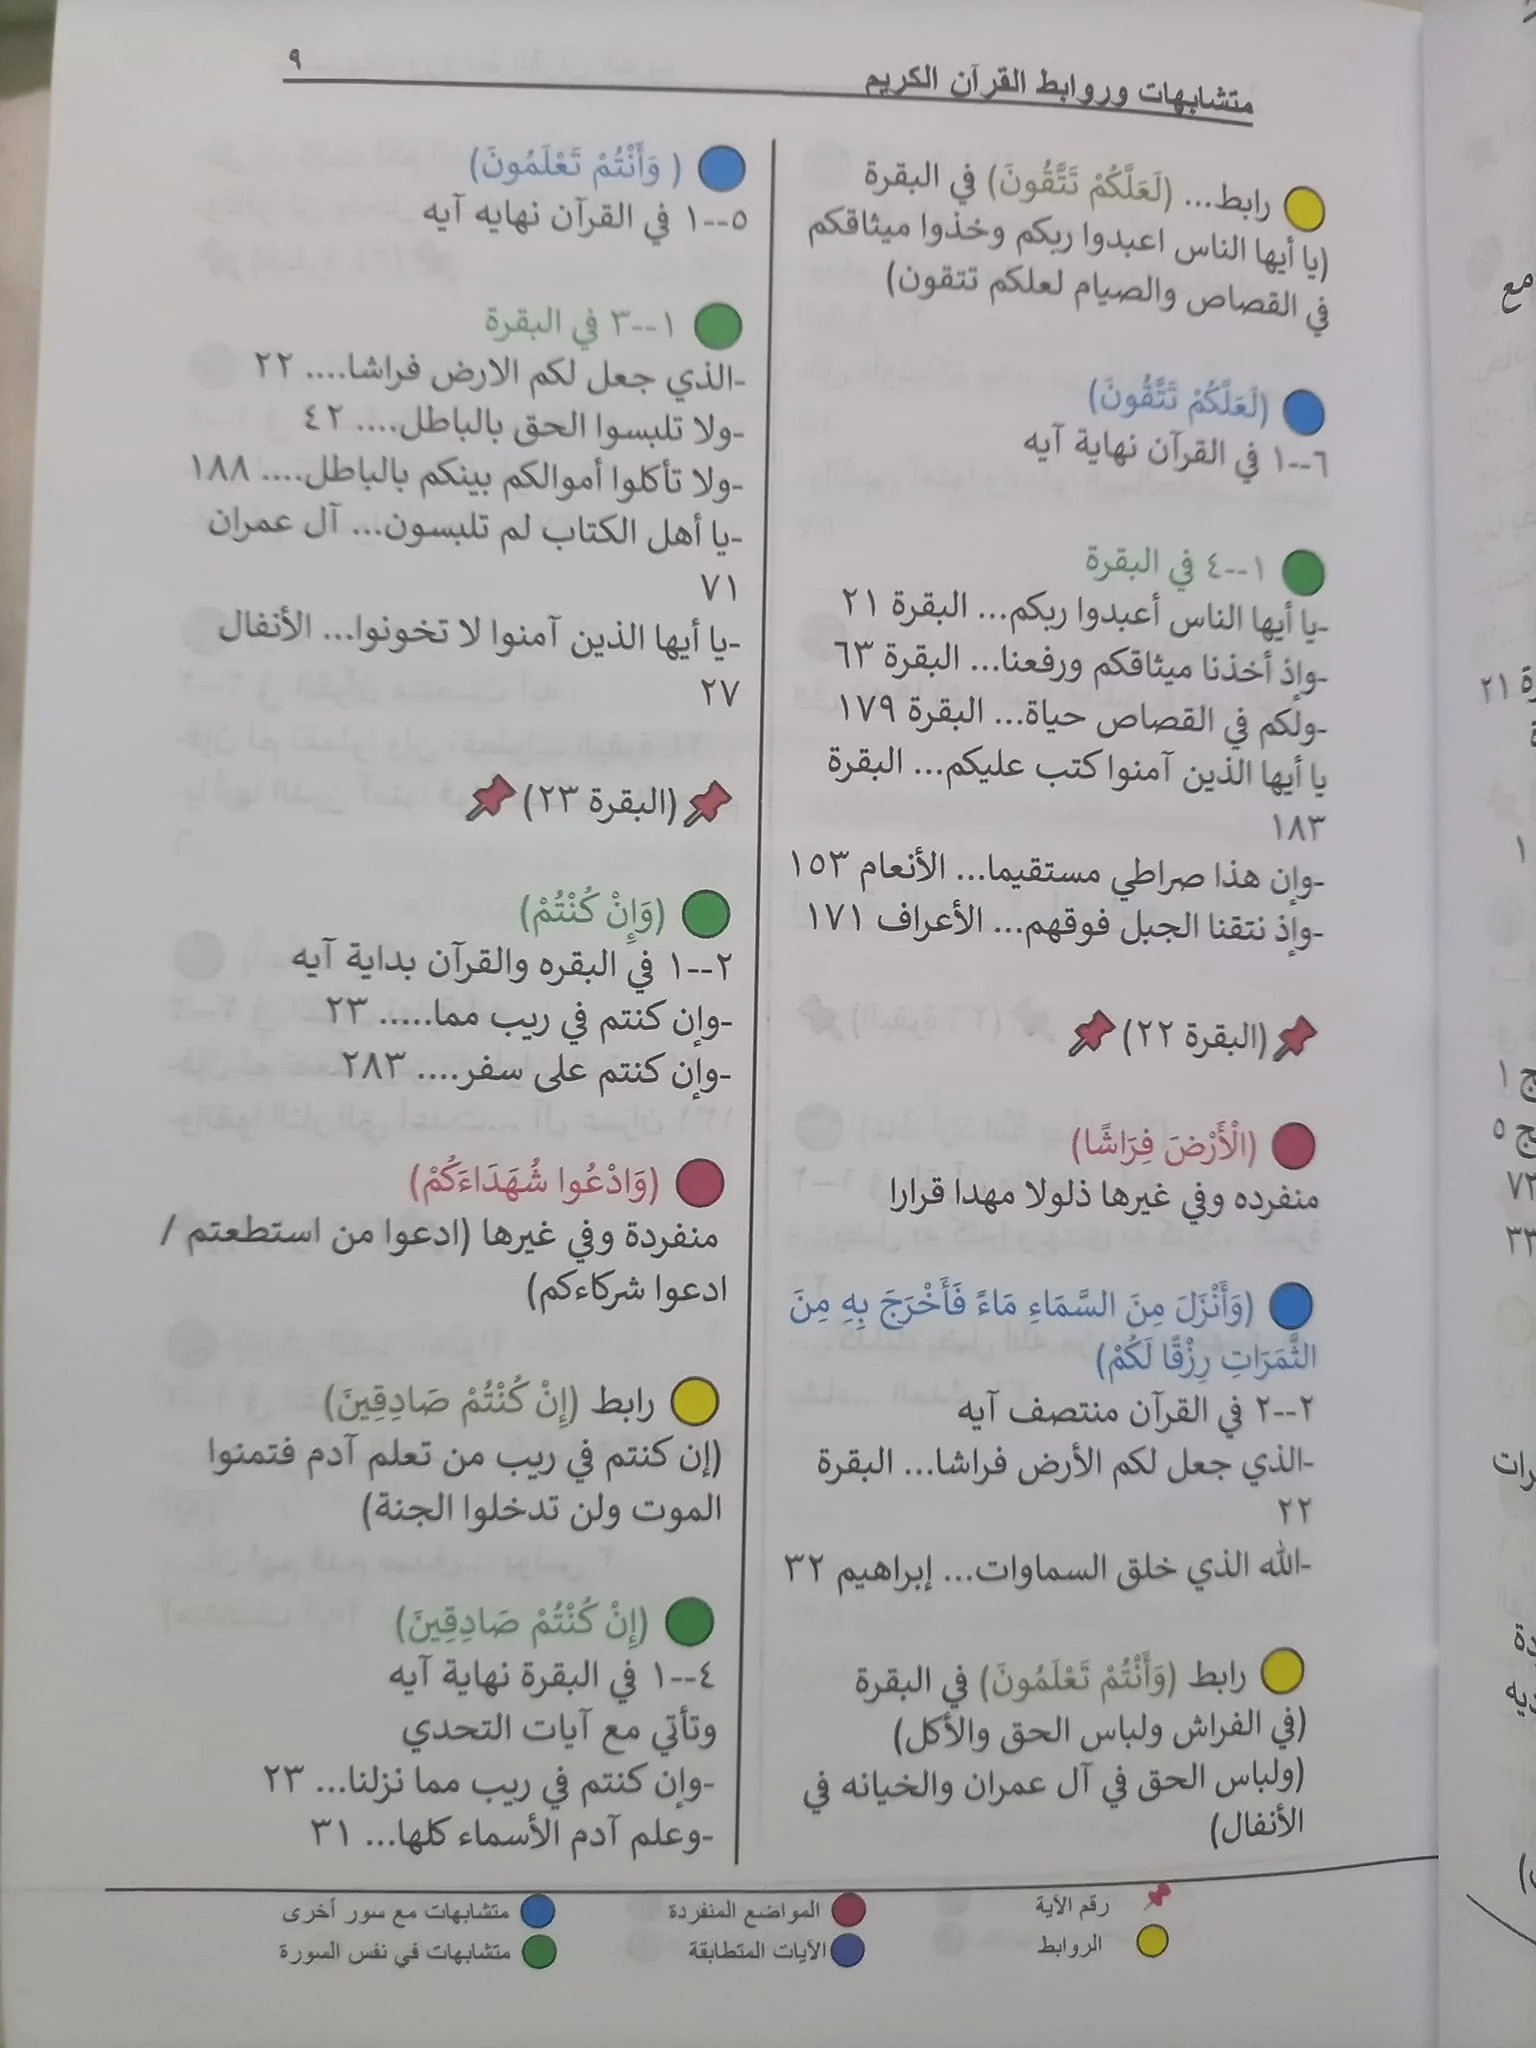 متشابهات وروابط القرآن الكريم
٩
رابط... (لَعَلَّكُمْ تَتَّقُونَ) في البقرة
(يا أيها الناس اعبدوا ربكم وخذوا ميثاقكم
في القصاص والصيام لعلكم تتقون)
(لَعَلَّكُمْ تَتَّقُونَ)
٦--١ في القرآن نهاية آيه
١--٤ في البقرة
-يا أيها الناس أعبدوا ربكم... البقرة ٢١
-وإذ أخذنا ميثاقكم ورفعنا... البقرة ٦٣
-ولكم في القصاص حياة... البقرة ١٧٩
يا أيها الذين آمنوا كتب عليكم... البقرة
١٨٣
-وإن هذا صراطي مستقيما... الأنعام ١٥٣
-وإذ نتقنا الجبل فوقهم... الأعراف ١٧١
(البقرة ٢٢)
(الْأَرْضَ فِرَاشًا)
منفرده وفي غيرها ذلولا مهدا قرارا
(وَأَنْزَلَ مِنَ السَّمَاءِ مَاءً فَأَخْرَجَ بِهِ مِنَ
الثَّمَرَاتِ رِزْقًا لَكُمْ)
٢--٢ في القرآن منتصف آيه
-الذي جعل لكم الأرض فراشا... البقرة
٢٢
-الله الذي خلق السماوات... إبراهيم ٣٢
رابط (وَأَنْتُمْ تَعْلَمُونَ) في البقرة
(في الفراش ولباس الحق والأكل)
(ولباس الحق في آل عمران والخيانه في
الأنفال)
( وَأَنْتُمْ تَعْلَمُونَ)
٥--١ في القرآن نهايه آيه
١--٣ في البقرة
-الذي جعل لكم الارض فراشا.... ٢٢
-ولا تلبسوا الحق بالباطل.... ٤٢
-ولا تأكلوا أموالكم بينكم بالباطل.... ١٨٨
-يا أهل الكتاب لم تلبسون... آل عمران
٧١
-يا أيها الذين آمنوا لا تخونوا... الأنفال
٢٧
(البقرة ٢٣)
(وَإِنْ كُنْتُمْ)
٢--١ في البقره والقرآن بداية آيه
-وإن كنتم في ريب مما..... ٢٣
-وإن كنتم على سفر.... ٢٨٣
(وَادْعُوا شُهَدَاءَكُمْ)
منفردة وفي غيرها (ادعوا من استطعتم /
ادعوا شركاءكم)
رابط (إِنْ كُنْتُمْ صَادِقِينَ)
(إن كنتم في ريب من تعلم آدم فتمنوا
الموت ولن تدخلوا الجنة)
(إِنْ كُنْتُمْ صَادِقِينَ)
٤--١ في البقرة نهاية آيه
وتأتي مع آيات التحدي
-وإن كنتم في ريب مما نزلنا... ٢٣
-وعلم آدم الأسماء كلها... ٣١
رقم الآية
المواضع المنفردة
متشابهات مع سور أخرى
الروابط
الآيات المتطابقة
متشابهات في نفس السورة
مع
٢١
١
١
٥